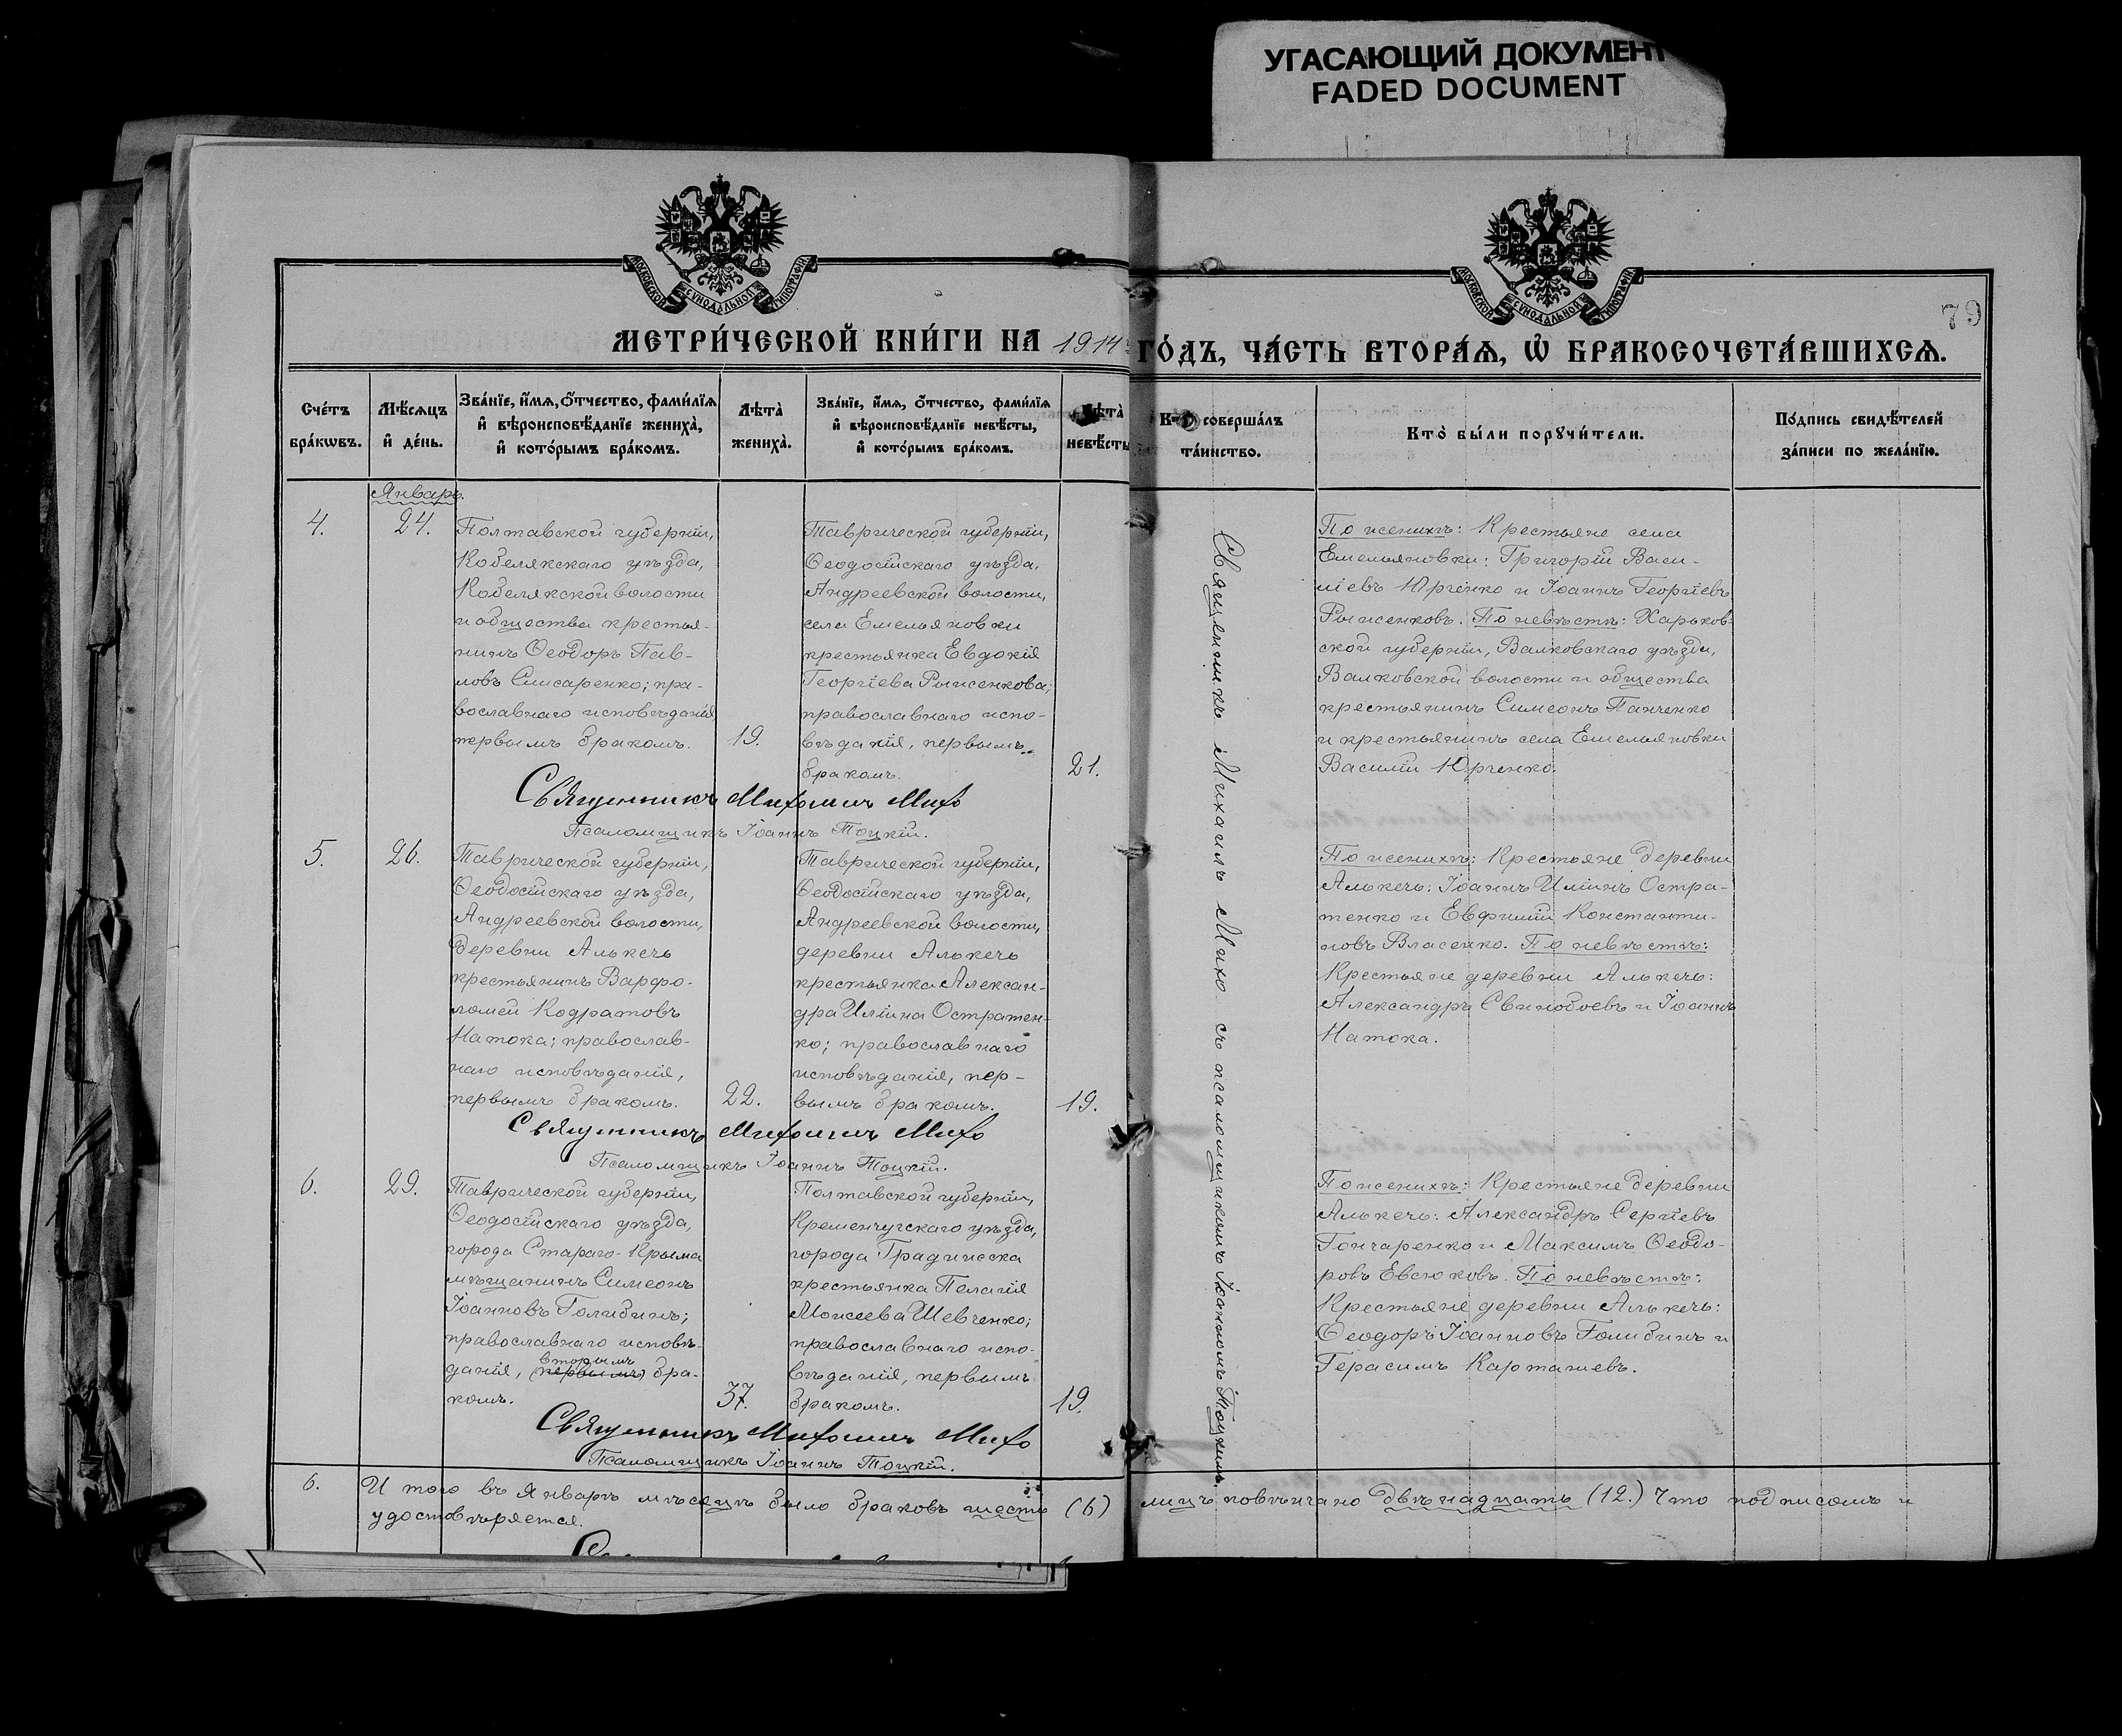 УГАСАЮЩИЙ ДОКУМЕНТ
FADED DOCUMENT
МОСКОВСКОЙ СѴНОДАЛЬНОЙ ТИПОГРАФІИ
МОСКОВСКОЙ СѴНОДАЛЬНОЙ ТИПОГРАФІИ
79
МЕТРИ́ЧЕСКОЙ КНИ́ГИ НА 1914 ГО́ДЪ, ЧА́СТЬ ВТОРА́Ѧ, Ѡ҆ БРАКОСОЧЕТА́ВШИХСѦ.
Сче́тъ
бра́кѡвъ.
Мѣ́сѧцъ
и҆ де́нь.
Зва́нїе, и҆́мѧ, ѻ҆́тчество, фами́лїѧ
и҆ вѣроисповѣ́данїе женихà,
и҆ кото́рымъ бра́комъ.
Лѣтà
женихà.
Зва́нїе, и҆́мѧ, ѻ҆́тчество, фами́лїѧ
и҆ вѣроисповѣ́данїе невѣ́сты,
и҆ кото́рымъ бра́комъ.
Лѣтà
невѣ́сты
Кто̀ соверша́лъ
та́инство.
Кто̀ бы́ли порꙋчи́тели.
По́дпись свидѣ́телей
за́писи по жела́нїю.
Январь.
4.
24.
Полтавской губернiи,
Кобелякскаго уѣзда,
Кобелякской волости
и общества крестья-
нинъ Ѳеодоръ Пав-
ловъ Слисаренко; пра-
вославнаго исповѣданія,
первымъ бракомъ.
19.
Таврической губерніи,
Ѳеодосійскаго уѣзда,
Андреевской волости,
села Емельяновки
крестьянка Евдокія
Георгіева Рыженкова;
православнаго испо-
вѣданія, первымъ
бракомъ.
21.
Священникъ Михаилъ Михо съ псаломщикомъ Іоанномъ Тоцкимъ.
По женихѣ: Крестьяне села
Емельяновки: Григорій Васи-
ліевъ Юрченко и Іоаннъ Георгіевъ
Рыженковъ. По невѣстѣ: Харьков-
ской губерніи, Валковскаго уѣзда,
Валковской волости и общества
крестьянинъ Симеонъ Панченко
и крестьянинъ села Емельяновки
Василій Юрченко.
Священникъ Михаилъ Михо
Псаломщикъ Іоаннъ Тоцкій.
5.
26.
Таврической губерніи,
Ѳеодосійскаго уѣзда,
Андреевской волости,
деревни Алькечь
крестьянинъ Варфо-
ломей Кодратовъ
Натока; православ-
наго исповѣданія,
первымъ бракомъ.
22.
Таврической губерніи,
Ѳеодосійскаго уѣзда,
Андреевской волости,
деревни Алькечь
крестьянка Алексан-
дра Иліина Остратен-
ко; православнаго
исповѣданія, пер-
вымъ бракомъ.
19.
По женихѣ: Крестьяне деревни
Алькечь: Іоаннъ Иліинъ Остра-
тенко и Евфимій Константи-
новъ Власенко. По невѣстѣ:
Крестьяне деревни Алькечь:
Александръ Свинобоевъ и Іоаннъ
Натока.
Священникъ Михаилъ Михо
Псаломщикъ Іоаннъ Тоцкій.
6.
29.
Таврической губерніи,
Ѳеодосійскаго уѣзда,
города Стараго-Крыма
мѣщанинъ Симеонъ
Іоанновъ Голибинъ;
православнаго исповѣ-
данія, (первымъ) вторымъ бра-
комъ.
37.
Полтавской губерніи,
Кременчугскаго уѣзда,
города Градижска
крестьянка Пелагія
Моисеева Шевченко;
православнаго испо-
вѣданія, первымъ
бракомъ.
19.
По женихѣ: Крестьяне деревни
Алькечь: Александръ Сергіевъ
Гончаренко и Максимъ Ѳеодо-
ровъ Евсюковъ. По невѣстѣ:
Крестьяне деревни Алькечь:
Ѳеодоръ Іоанновъ Голибинъ и
Герасимъ Карташевъ.
Священникъ Михаилъ Михо
Псаломщикъ Іоаннъ Тоцкій.
6. И того въ Январѣ мѣсяцѣ было браковъ шесть (6) лицъ повѣнчано двѣнадцать (12.) Что подписомъ и
удостовѣряется.